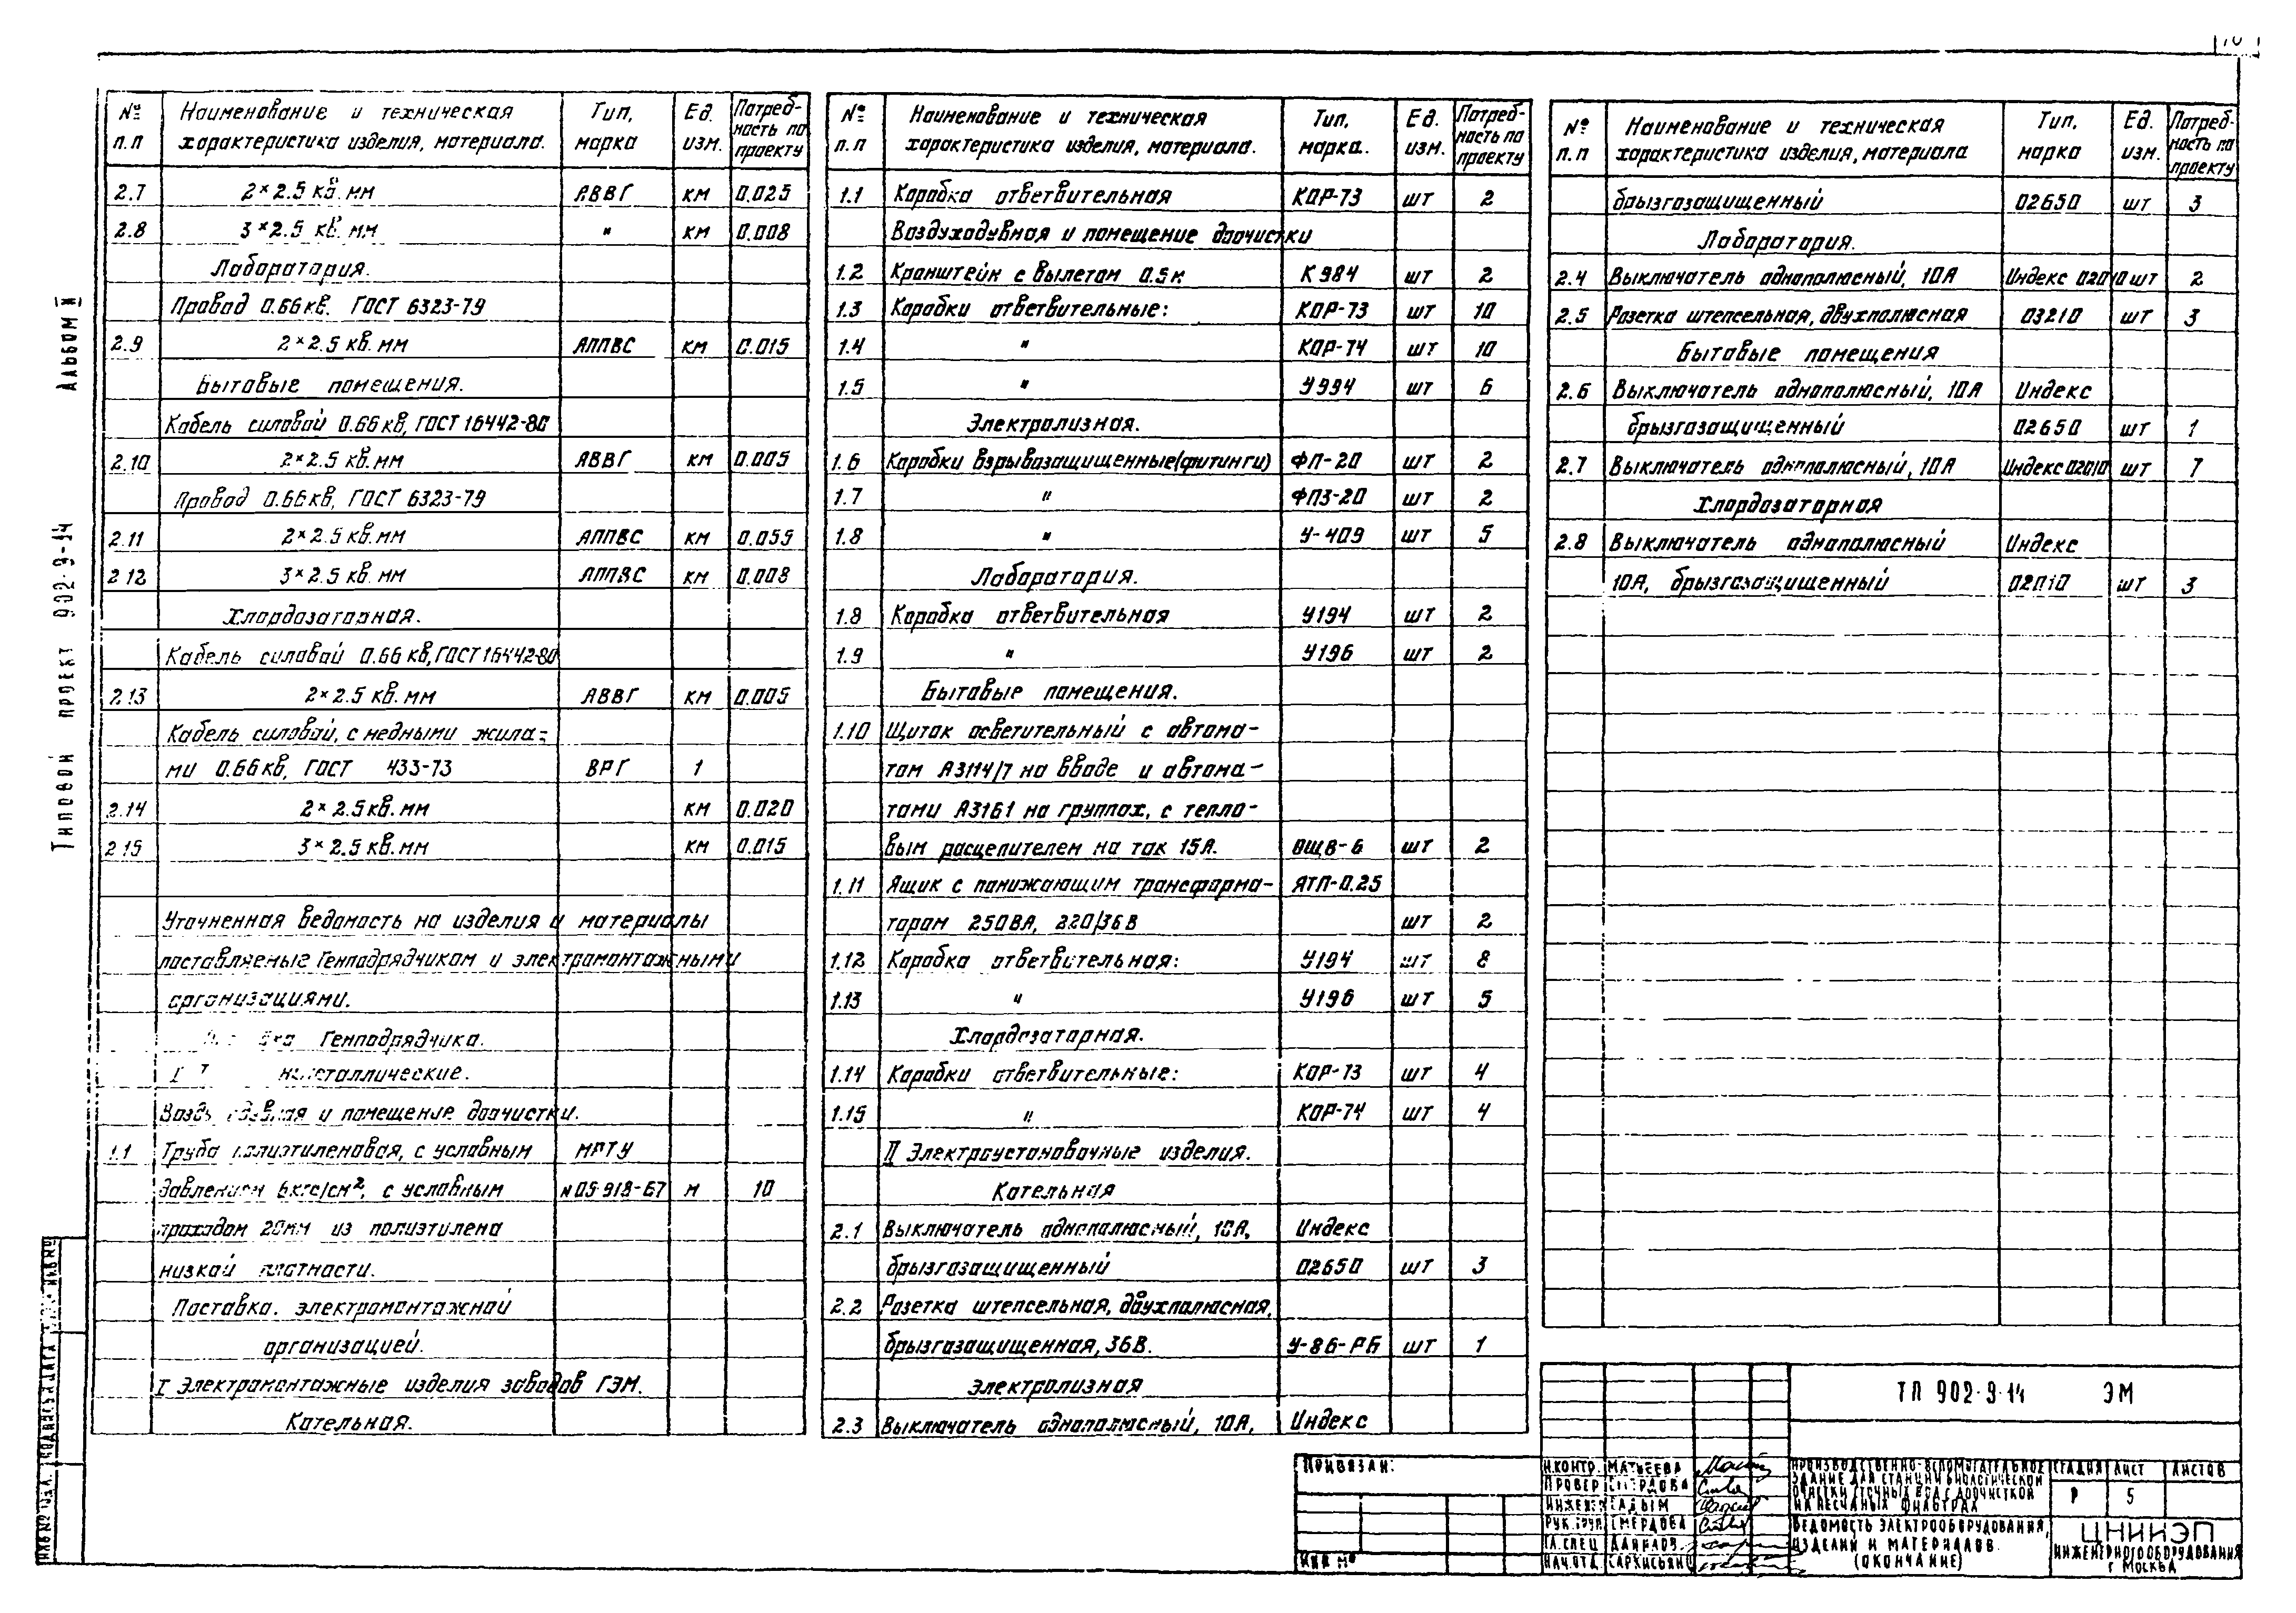 № п.п Наименование и техническая характеристика изделия, материала. Тип, марка Ед. изм. Потребность по проекту
2.7 2×2.5 кв. мм АВВГ км 0.025
2.8 3×2.5 кв. мм " км 0.008
Лаборатория.
Провод 0.66 кв. ГОСТ 6323-79
2.9 2×2.5 кв. мм АППВС км 0.015
Бытовые помещения.
Кабель силовой 0.66 кв, ГОСТ 16442-80
2.10 2×2.5 кв. мм АВВГ км 0.005
Провод 0.66 кв, ГОСТ 6323-79
2.11 2×2.5 кв. мм АППВС км 0.055
2.12 3×2.5 кв. мм АППВС км 0.008
Хлордозаторная.
Кабель силовой 0.66 кв, ГОСТ 16442-80
2.13 2×2.5 кв. мм АВВГ км 0.005
Кабель силовой, с медными жила=
ми 0.66 кв, ГОСТ 433-73 ВРГ 1
2.14 2×2.5 кв. мм км 0.020
2.15 3×2.5 кв. мм км 0.015
Уточненная ведомость на изделия и материалы
поставляемые Генподрядчиком и электромонтажными
организациями.
Генподрядчика.
I
Воздуходувная и помещение доочистки.
1.1 Труба полиэтиленовая, с условным МРТУ
давлением 6 кгс/см², с условным №05-918-67 м 10
проходом 20мм из полиэтилена
низкой плотности.
Поставка электромонтажной
организацией.
I Электромонтажные изделия заводов ГЭМ.
Котельная.
№ п.п Наименование и техническая характеристика изделия, материала. Тип, марка. Ед. изм. Потребность по проекту
1.1 Коробка ответвительная КОР-73 шт 2
Воздуходувная и помещение доочистки
1.2 Кронштейн с вылетом 0.5м К984 шт 2
1.3 Коробки ответвительные: КОР-73 шт 10
1.4 " КОР-74 шт 10
1.5 " У994 шт 6
Электролизная.
1.6 Коробки взрывозащищенные(фитинги) ФП-20 шт 2
1.7 " ФПЗ-20 шт 2
1.8 " У-409 шт 5
Лаборатория.
1.8 Коробка ответвительная У194 шт 2
1.9 " У196 шт 2
Бытовые помещения.
1.10 Щиток осветительный с автома-
том А3114/7 на вводе и автома-
тами А3161 на группах, с тепло-
вым расцепителем на ток 15А. ОЩВ-6 шт 2
1.11 Ящик с понижающим трансформа- ЯТП-0.25
тором 250ВА, 220/36В шт 2
1.12 Коробка ответвительная: У194 шт 8
1.13 " У196 шт 5
Хлордозаторная.
1.14 Коробки ответвительные: КОР-73 шт 4
1.15 " КОР-74 шт 4
II Электроустановочные изделия.
Котельная
2.1 Выключатель однополюсный, 10А, Индекс
брызгозащищенный 02650 шт 3
2.2 Розетка штепсельная, двухполюсная,
брызгозащищенная, 36В. У-86-РБ шт 1
Электролизная
2.3 Выключатель однополюсный, 10А, Индекс
№ п.п Наименование и техническая характеристика изделия, материала Тип, марка Ед. изм. Потребность по проекту
брызгозащищенный 02650 шт 3
Лаборатория.
2.4 Выключатель однополюсный, 10А Индекс 02010 шт 2
2.5 Розетка штепсельная, двухполюсная 03210 шт 3
Бытовые помещения
2.6 Выключатель однополюсный, 10А Индекс
брызгозащищенный 02650 шт 1
2.7 Выключатель однополюсный, 10А Индекс 02010 шт 7
Хлордозаторная
2.8 Выключатель однополюсный Индекс
10А, брызгозащищенный 02010 шт 3
Альбом
Типовой проект 902-9-14
Привязан:
ИНВ №
ТП 902-9-14 ЭМ
Н.КОНТР. МАТВЕЕВА
ПРОВЕР.
ИНЖЕНЕР
РУК.ГРУП. СМЕРДОВА
ГЛ.СПЕЦ
НАЧ.ОТД.
ПРОИЗВОДСТВЕННО-ВСПОМОГАТЕЛЬНОЕ
ЗДАНИЕ ДЛЯ СТАНЦИИ БИОЛОГИЧЕСКОЙ
ОЧИСТКИ СТОЧНЫХ ВОД С ДООЧИСТКОЙ
НА ПЕСЧАНЫХ ФИЛЬТРАХ
СТАДИЯ ЛИСТ ЛИСТОВ
Р 5
ВЕДОМОСТЬ ЭЛЕКТРООБОРУДОВАНИЯ,
ИЗДЕЛИЙ И МАТЕРИАЛОВ.
(ОКОНЧАНИЕ)
ЦНИИЭП
ИНЖЕНЕРНОГО ОБОРУДОВАНИЯ
г МОСКВА